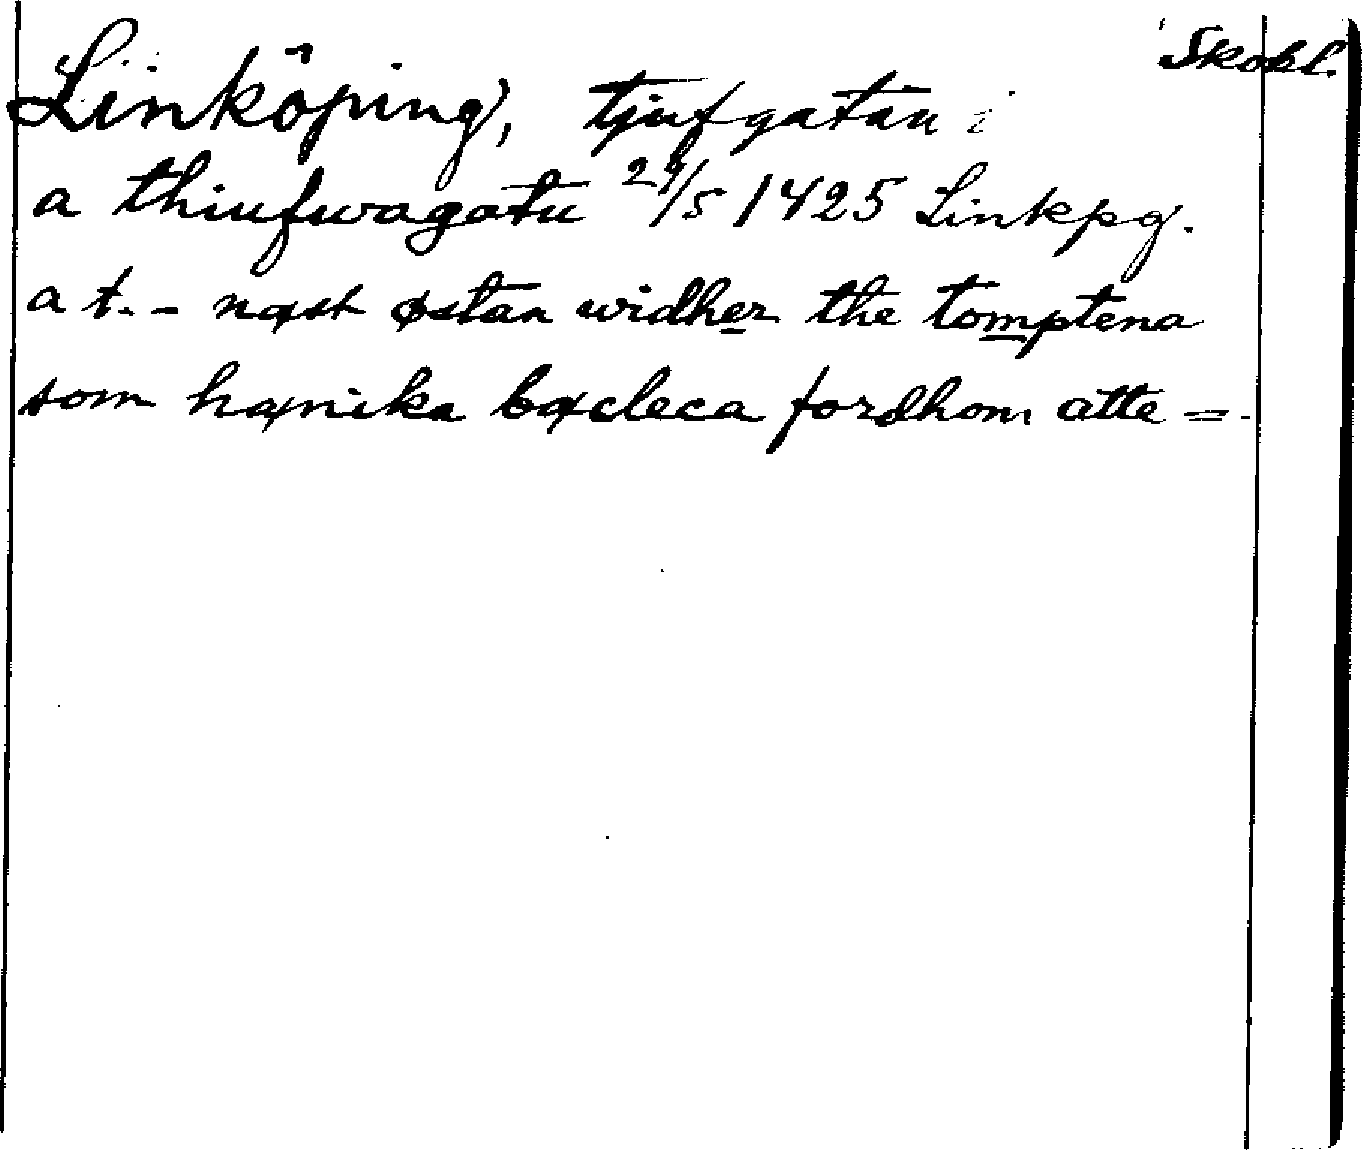 Skokl.
Linköping, tjufgatan i
a thiufwagatu 29/5 1425 Linkpg.
a t. - næst østan widher the tomptena
som hænika bæcleca fordhom atte =.